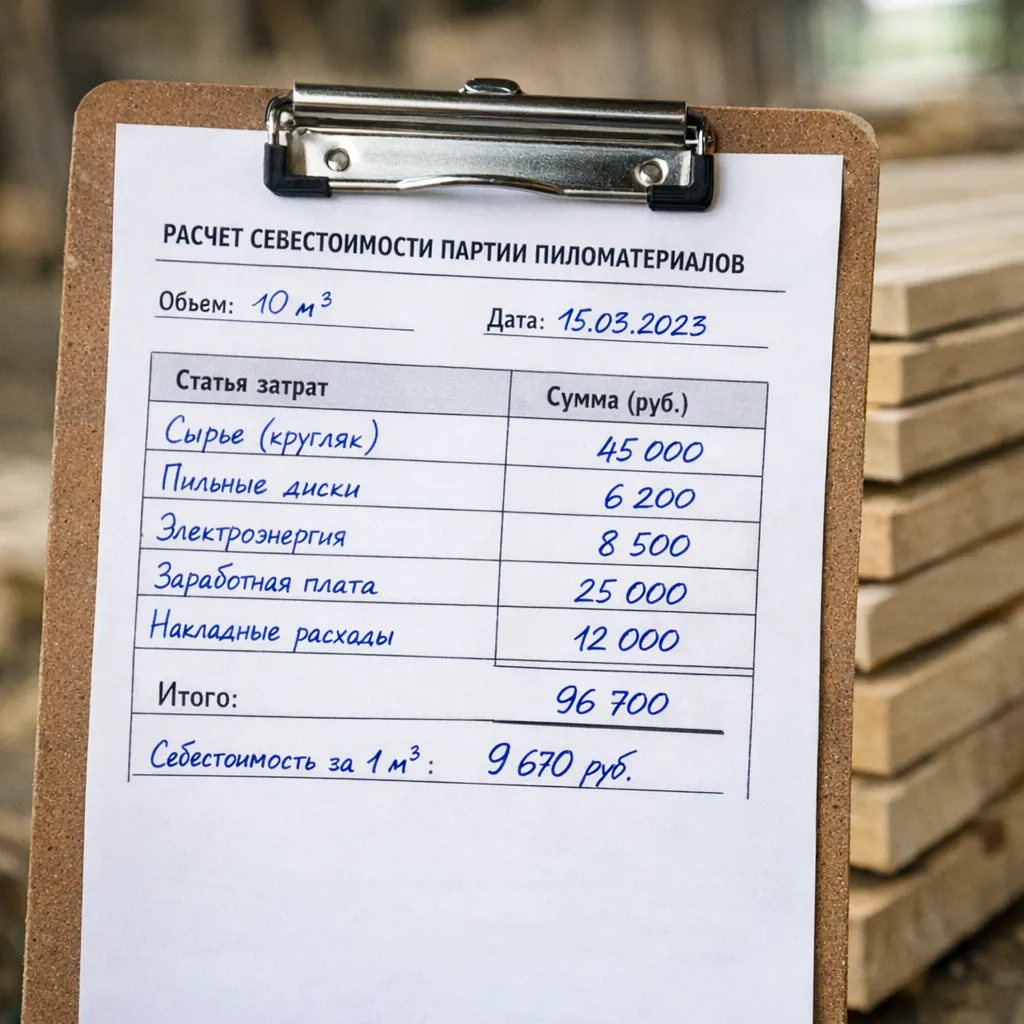 РАСЧЕТ СЕВЕСТОИМОСТИ ПАРТИИ ПИЛОМАТЕРИАЛОВ
Обьем: 10 м³ Дата: 15.03.2023
Статья затрат Сумма (руб.)
Сырье (кругляк) 45 000
Пильные диски 6 200
Электроэнергия 8 500
Заработная плата 25 000
Накладные расходы 12 000
Итого: 96 700
Себестоимость за 1 м³ : 9 670 руб.